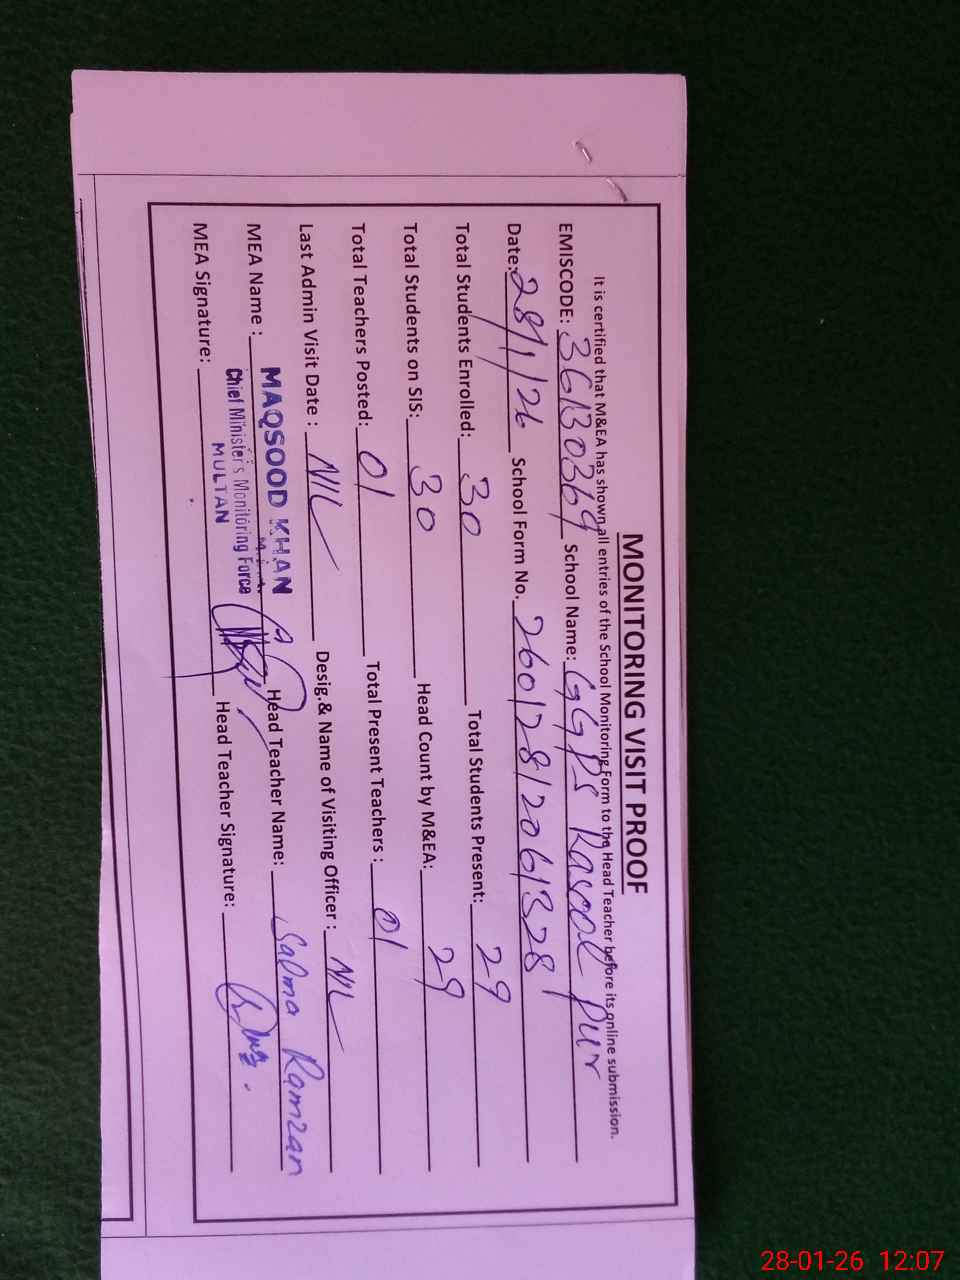 MONITORING VISIT PROOF
It is certified that M&EA has shown all entries of the School Monitoring Form to the Head Teacher before its online submission.
EMISCODE: 36130369 School Name: GGPS Rasool Pur
Date: 28/1/26 School Form No. 26012812061328
Total Students Enrolled: 30 Total Students Present: 29
Total Students on SIS: 30 Head Count by M&EA: 29
Total Teachers Posted: 01 Total Present Teachers : 01
Last Admin Visit Date : NIL Desig.& Name of Visiting Officer : NIL
MEA Name : MAQSOOD KHAN Head Teacher Name: Salma Ramzan
M.E.A.
Chief Minister's Monitoring Force
MULTAN
MEA Signature: Head Teacher Signature:
28-01-26 12:07